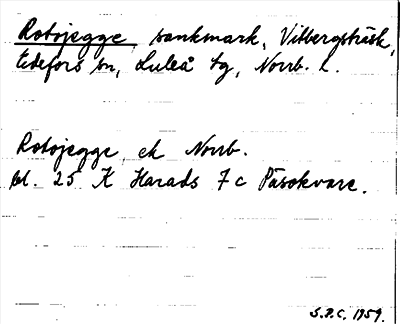 Rotojegge, sankmark, Vitbergsträsk,
Edefors sn, Luleå tg, Norrb. l.
Rotojegge, ek Norrb.
bl. 25 K Harads 7 c Påsokvare.
S.P.C. 1959.